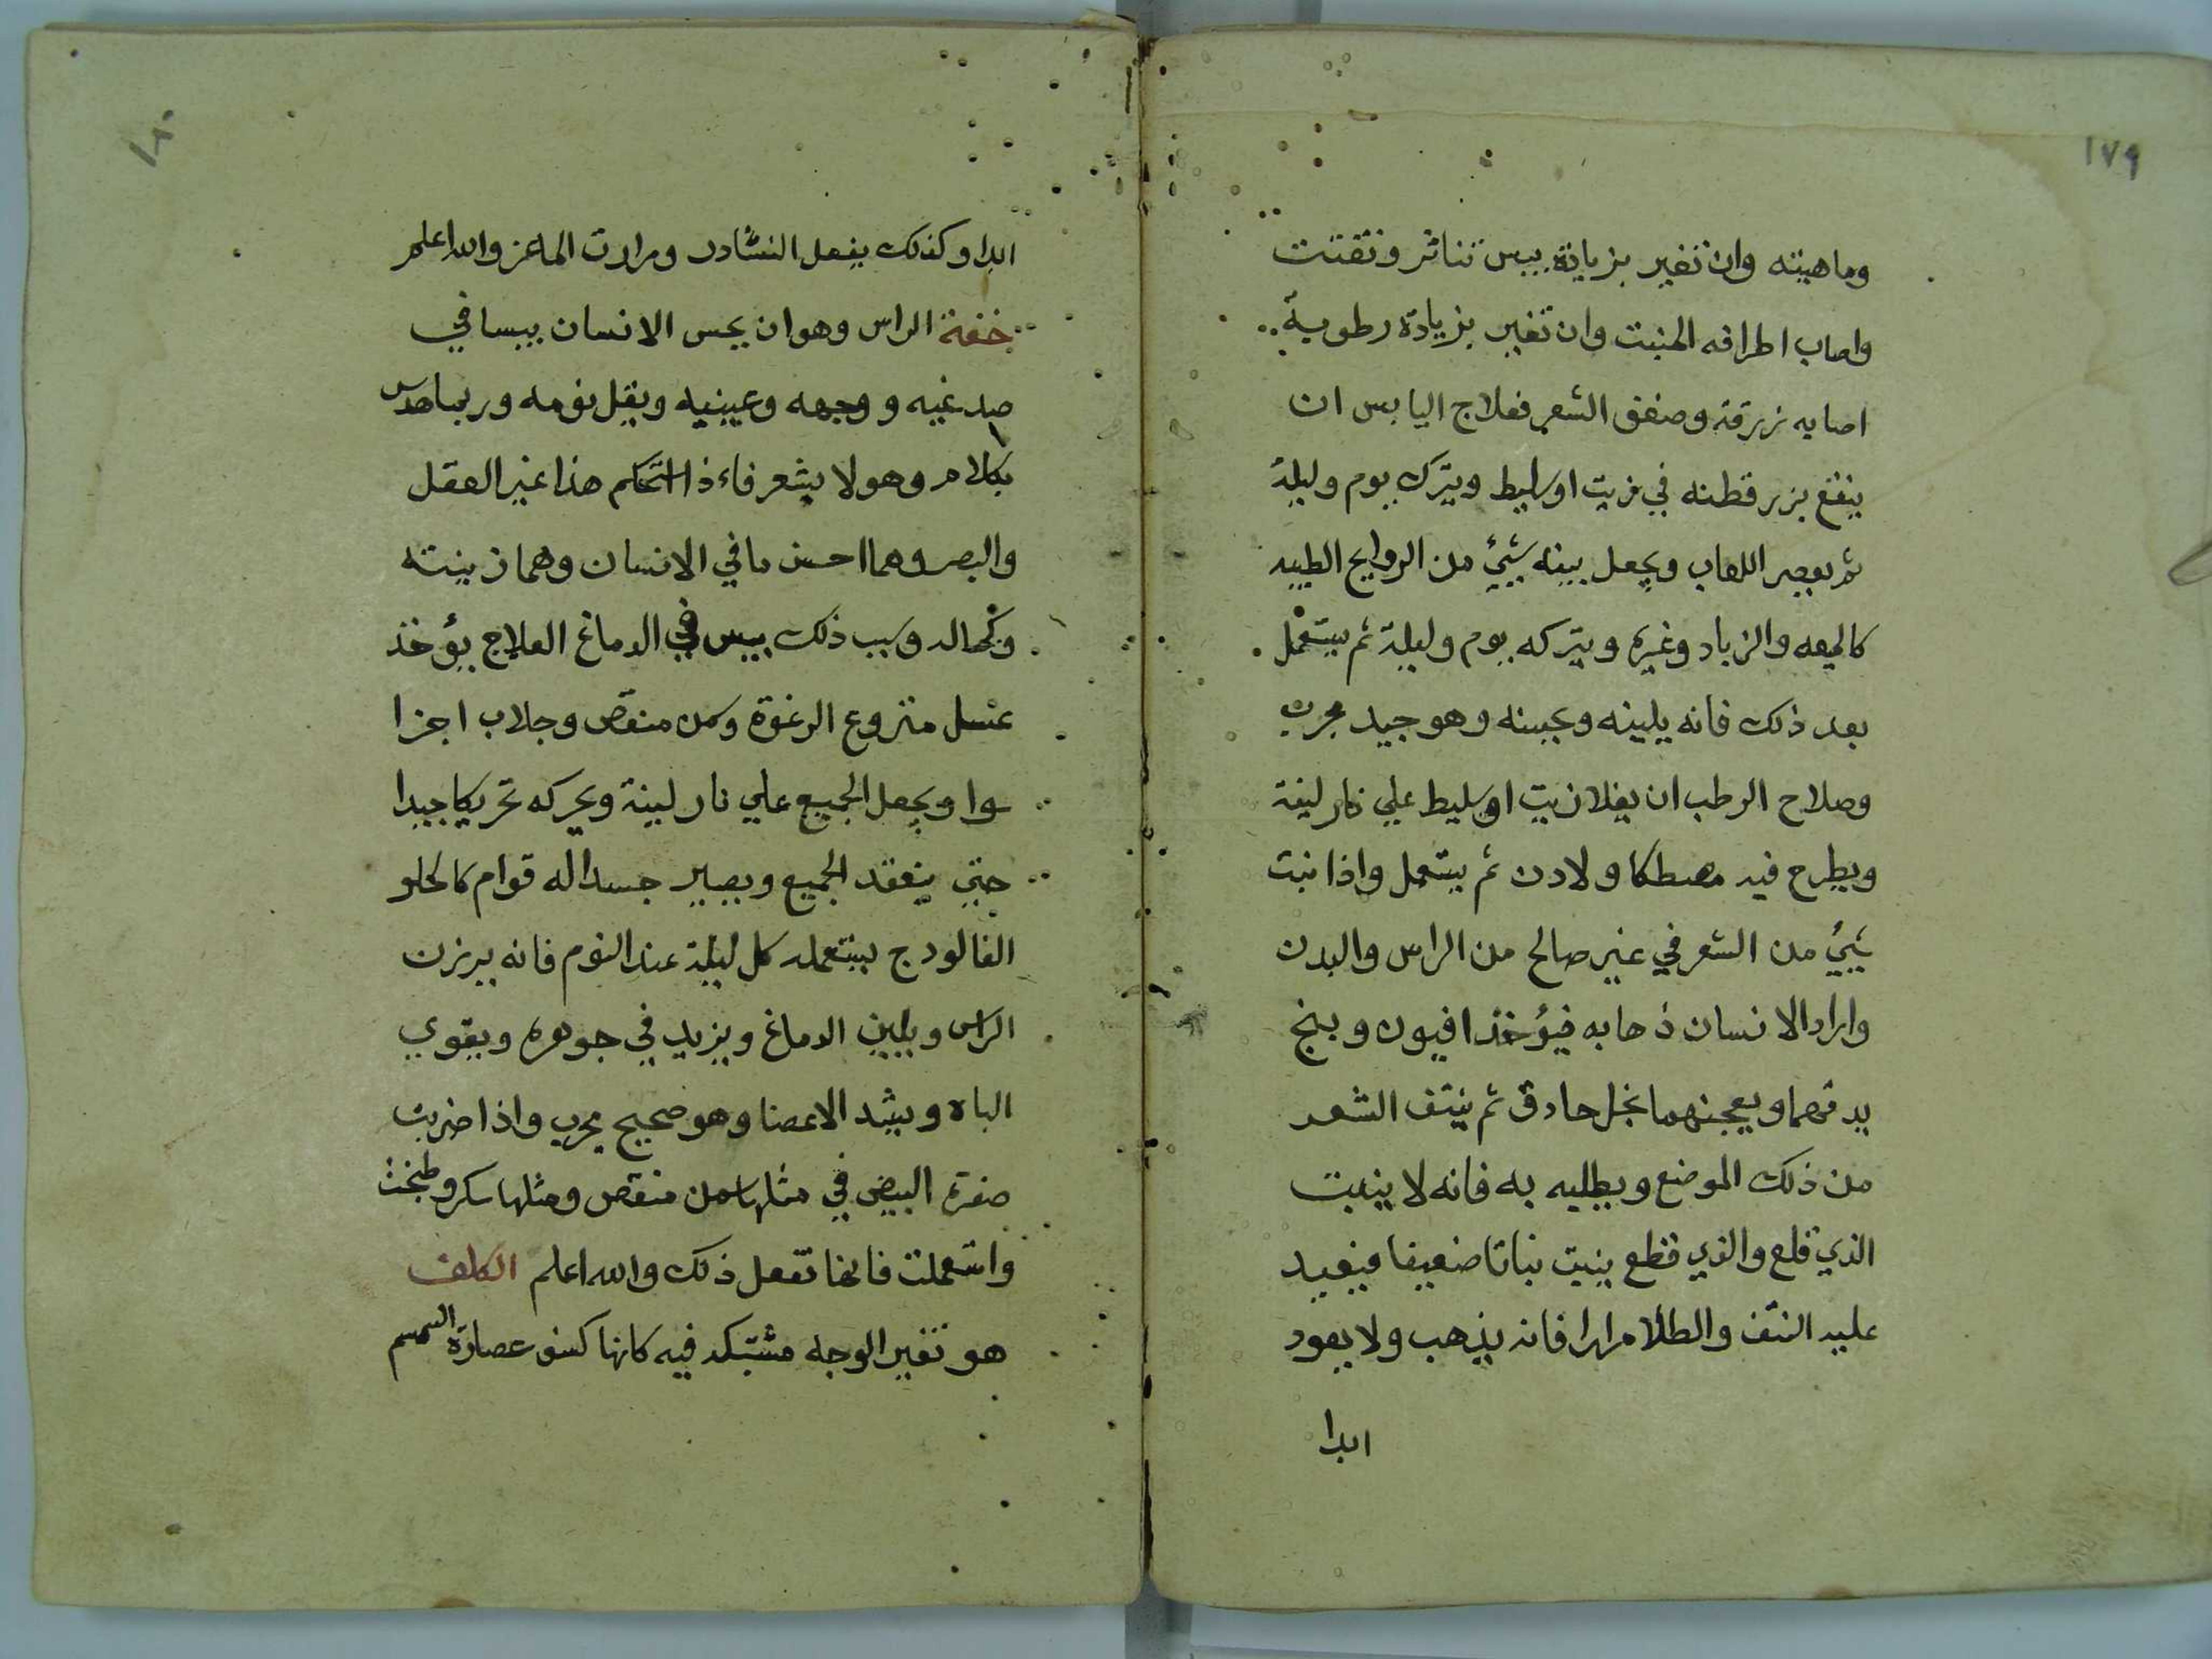 ١٧٩
وماهيته وان تغير بزيادة يبس تناثر وتفتت
واصاب اطرافه المنبت وان تغير بزيادة رطوبة
اصابه زرقة وصفق الشعر فعلاج اليابس ان
ينقع بزر قطنه في زيت اوسليط ويترك يوم وليلة
ثم يعصر اللعاب ويجعل بينه شيئ من الروايح الطيبه
كالميعه والزباد وغيره ويتركه يوم وليلة ثم يستعمل
بعد ذلك فانه يلينه ويحسنه وهو جيد مجرب
وصلاح الرطب ان يغلا زيت اوسليط علي نار لينة
ويطرح فيه مصطكا ولادن ثم يستعمل واذا نبت
شيئ من الشعر في غير صالح من الراس والبدن
واراد الانسان ذهابه فيؤخذ افيون وبنج
يدقهما ويعجنهما بخل حادق ثم ينتف الشعر
من ذلك الموضع ويطليه به فانه لا ينبت
الذي قلع والذي قطع ينبت نباتا ضعيفا فيعيد
عليه النتف والطلا مرارا فانه يذهب ولا يعود
ابدا
١٨٠
ابدا وكذلك يفعل النشادر ومرارت الماعز والله اعلم
خفة الراس وهو ان يحس الانسان يبسا في
صدغيه ووجهه وعينيه ويقل نومه وربما
بكلام وهو لا يشعر فاءذا استحكم هذا غير العقل
والبصر وهما احسن ما في الانسان وهما زينته
وكماله وسبب ذلك يبس في الدماغ العلاج يؤخذ
عسل منزوع الرغوة وسمن منقص وجلاب اجزا
سوا ويجعل الجميع علي نار لينة ويحركه تحريكا جيدا
حتي ينعقد الجميع ويصير جسدا له قوام كالحلو
الفالودج يستعمله كل ليلة عند النوم فانه يرزن
الراس ويلين الدماغ ويزيد في جوهره ويقوي
الباه ويشد الاعضا وهو صحيح مجرب واذا ضربت
صفرة البيض في مثلها سمن منقص ومثلها سكر وطبخت
واستعملت فانها تفعل ذلك والله اعلم الكلف
هو تغير الوجه مشتبكه فيه كانها كسف عصارة السمسم